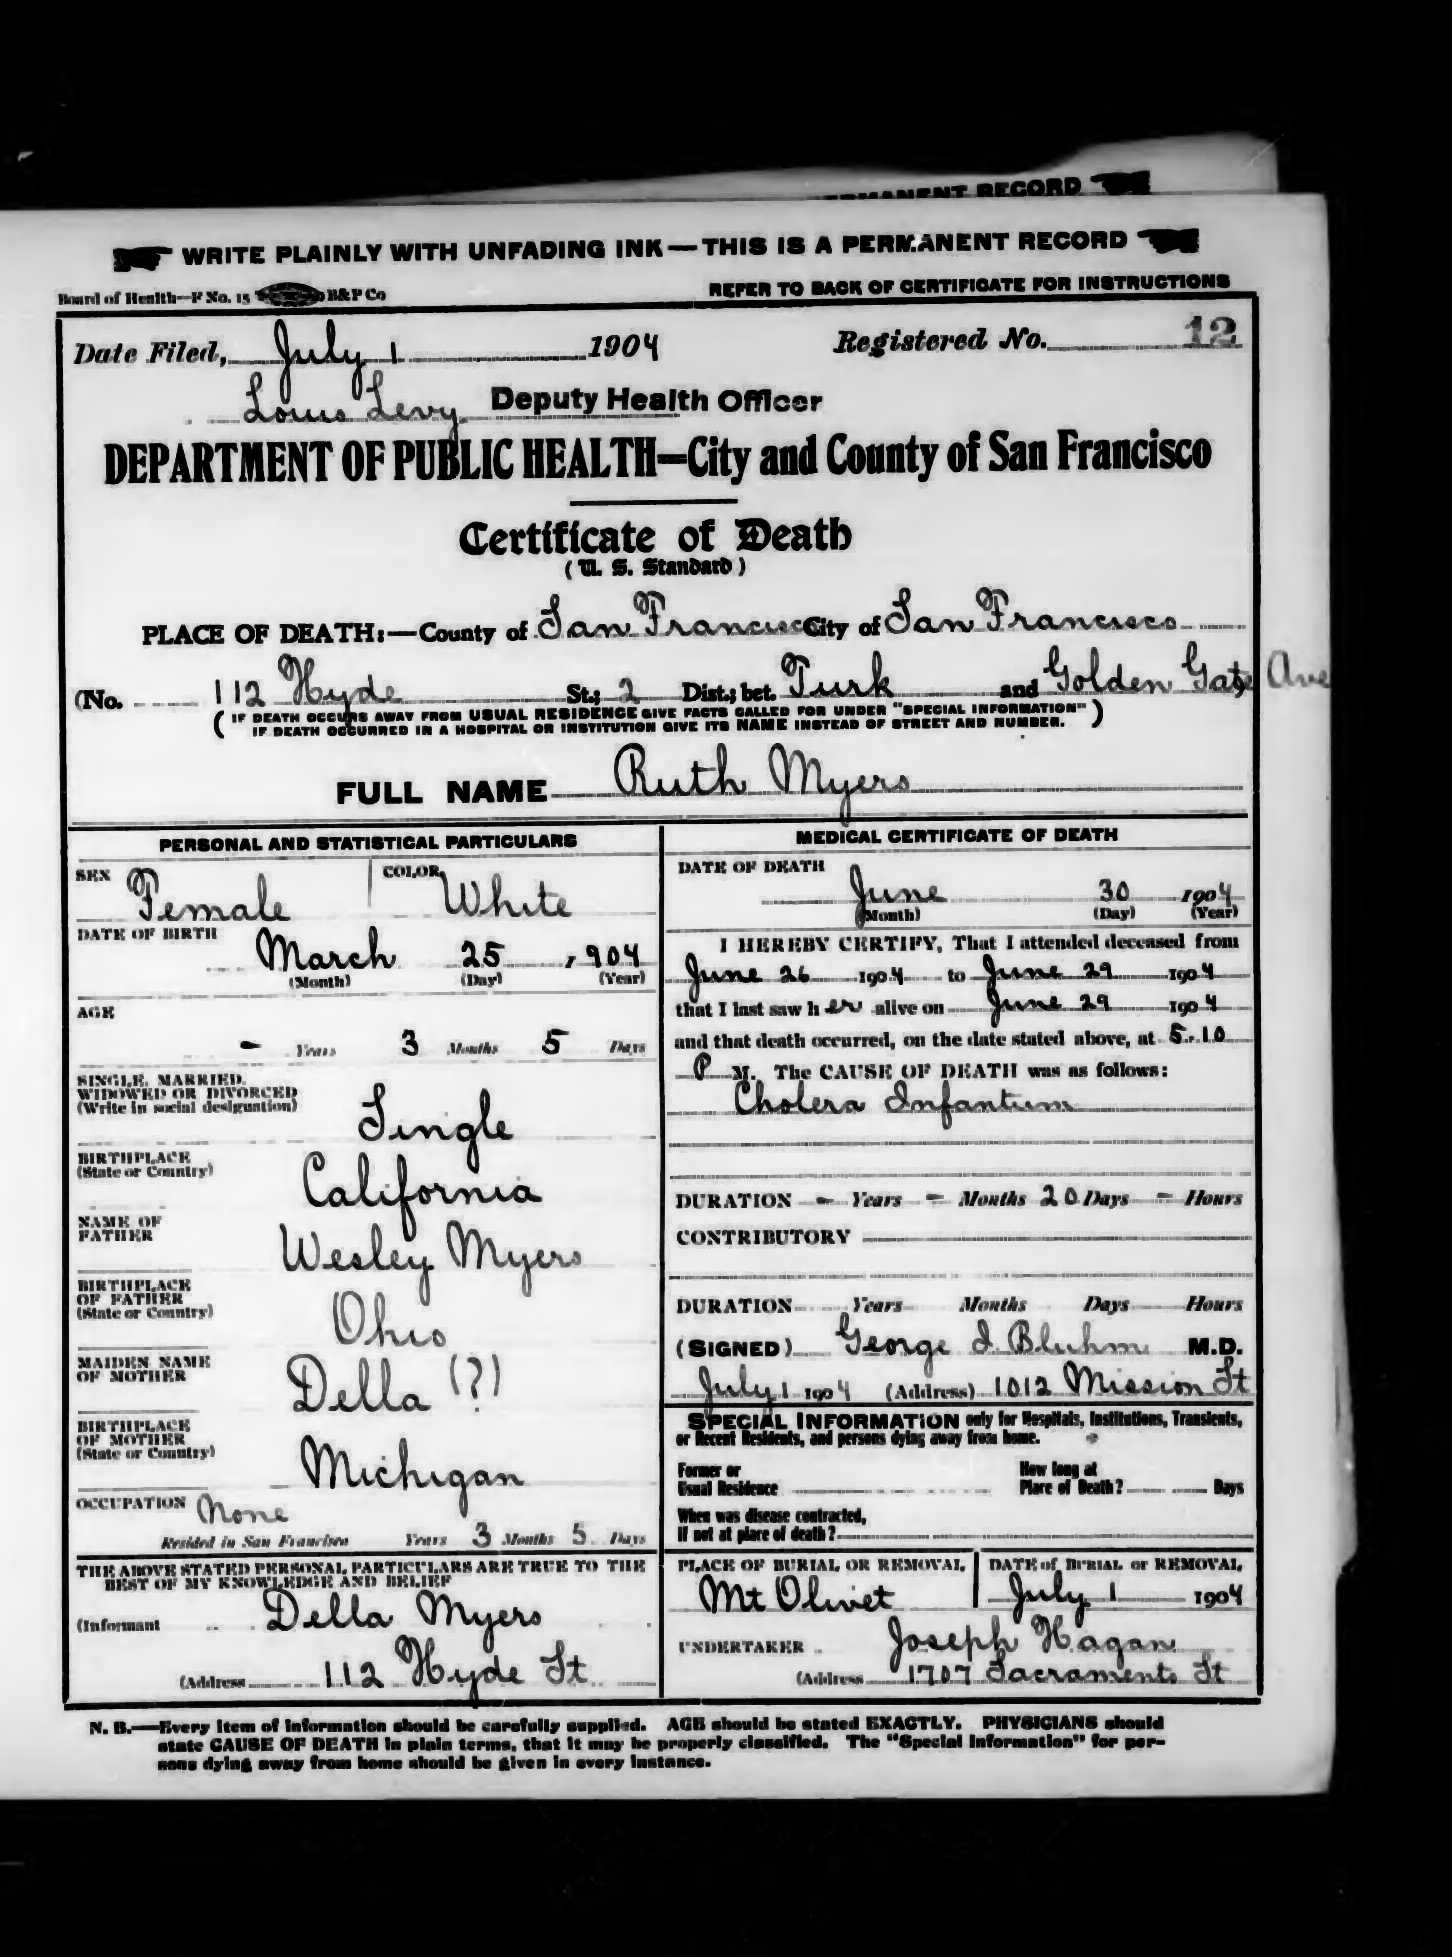 PERMANENT RECORD
WRITE PLAINLY WITH UNFADING INK — THIS IS A PERMANENT RECORD
Board of Health—F No. 15 B&P Co
REFER TO BACK OF CERTIFICATE FOR INSTRUCTIONS
Date Filed, July 1 1904 Registered No. 12
Louis Levy Deputy Health Officer
DEPARTMENT OF PUBLIC HEALTH—City and County of San Francisco
Certificate of Death
(U. S. Standard)
PLACE OF DEATH:—County of San Francisco City of San Francisco
(No. 112 Hyde St.; 2 Dist.; bet. Turk and Golden Gate Ave
( IF DEATH OCCURS AWAY FROM USUAL RESIDENCE GIVE FACTS CALLED FOR UNDER "SPECIAL INFORMATION" )
IF DEATH OCCURRED IN A HOSPITAL OR INSTITUTION GIVE ITS NAME INSTEAD OF STREET AND NUMBER.
FULL NAME Ruth Myers
PERSONAL AND STATISTICAL PARTICULARS
SEX Female COLOR White
DATE OF BIRTH
March 25, 904
(Month) (Day) (Year)
AGE
- Years 3 Months 5 Days
SINGLE, MARRIED,
WIDOWED OR DIVORCED
(Write in social designation)
Single
BIRTHPLACE
(State or Country)
California
NAME OF
FATHER
Wesley Myers
BIRTHPLACE
OF FATHER
(State or Country)
Ohio
MAIDEN NAME
OF MOTHER
Della (?)
BIRTHPLACE
OF MOTHER
(State or Country)
Michigan
OCCUPATION None
Resided in San Francisco Years 3 Months 5 Days
THE ABOVE STATED PERSONAL PARTICULARS ARE TRUE TO THE
BEST OF MY KNOWLEDGE AND BELIEF
(Informant Della Myers
(Address 112 Hyde St
MEDICAL CERTIFICATE OF DEATH
DATE OF DEATH
June 30 1904
(Month) (Day) (Year)
I HEREBY CERTIFY, That I attended deceased from
June 26 1904 to June 29 1904
that I last saw her alive on June 29 1904
and that death occurred, on the date stated above, at 5.10
P M. The CAUSE OF DEATH was as follows:
Cholera Infantum
DURATION - Years - Months 20 Days - Hours
CONTRIBUTORY
DURATION Years Months Days Hours
(SIGNED) George I. Bluhm M.D.
July 1 1904 (Address) 1012 Mission St
SPECIAL INFORMATION only for Hospitals, Institutions, Transients,
or Recent Residents, and persons dying away from home.
Former or
Usual Residence
How long at
Place of Death? Days
When was disease contracted,
If not at place of death?
PLACE OF BURIAL OR REMOVAL
Mt Olivet
DATE of BURIAL or REMOVAL
July 1 1904
UNDERTAKER Joseph Hagan
(Address 1707 Sacramento St
N. B.—Every item of information should be carefully supplied. AGE should be stated EXACTLY. PHYSICIANS should
state CAUSE OF DEATH in plain terms, that it may be properly classified. The "Special Information" for per-
sons dying away from home should be given in every instance.